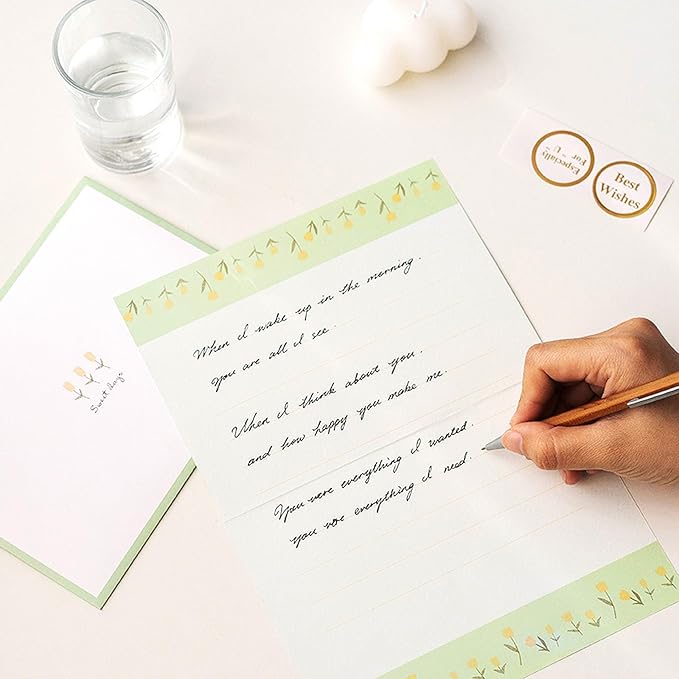 When I wake up in the morning.
You are all I see.
When I think about you.
and how happy you make me.
You were everything I wanted.
you were everything I need.
Sweet days
Especially
For "U"
Best
Wishes